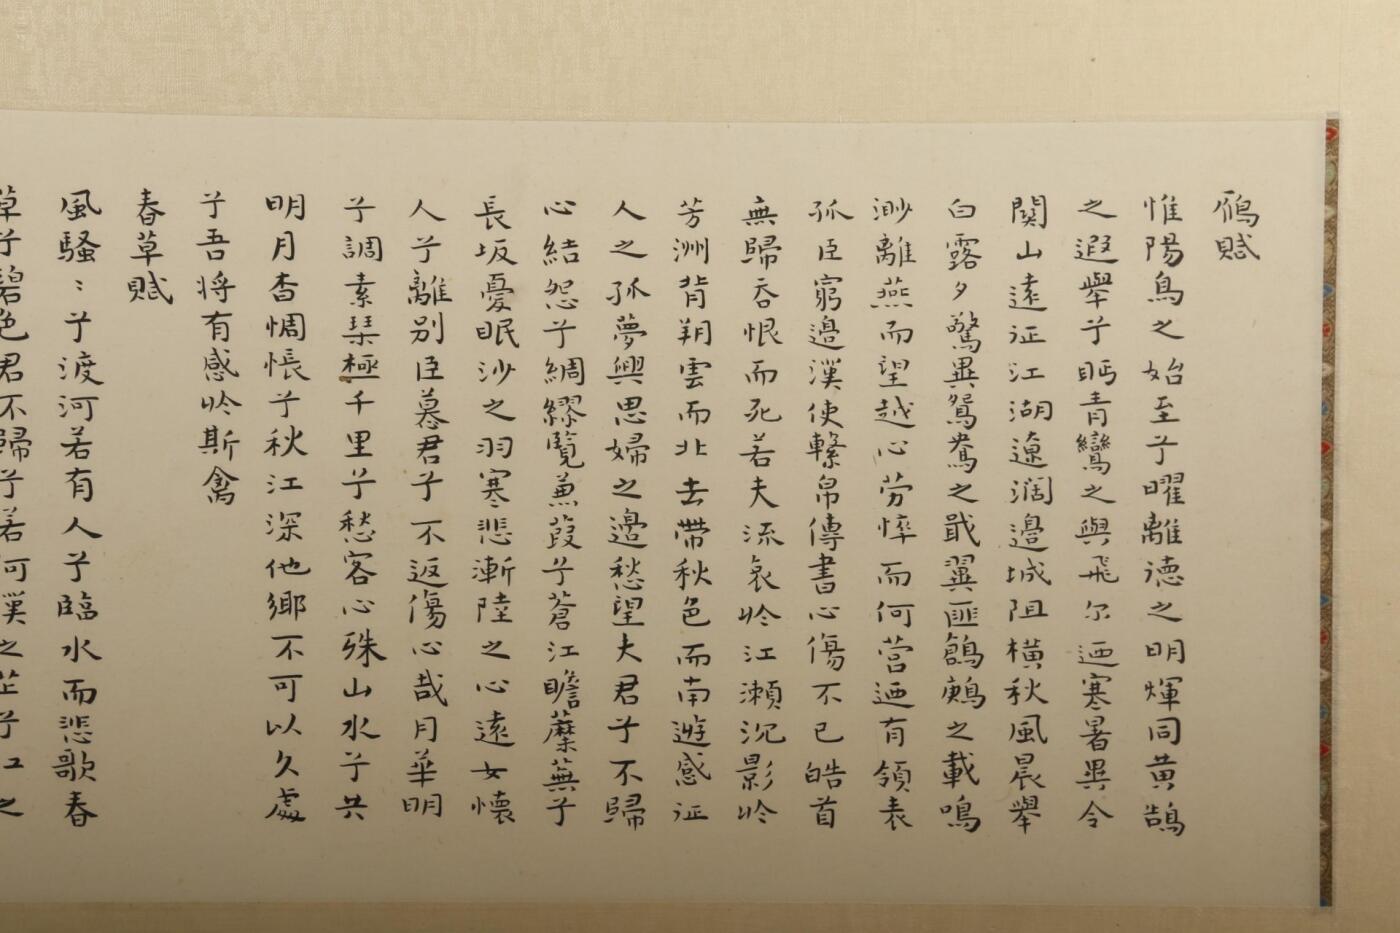 鴈賦
惟陽鳥之始至兮曜離德之明煇同黄鵠
之遐舉兮眄青鸞之與飛尔迺寒暑異令
関山遠征江湖遼濶邊城阻橫秋風晨舉
白露夕驚異鴛鴦之戢翼匪鶬鶊之載鳴
渺離燕而望越心勞悴而何営迺有領表
孤臣窮邊漢使繫帛傳書心傷不已皓首
無歸吞恨而死若夫流哀吟江瀨沉影吟
芳洲背朔雲而北去帶秋色而南遊感征
人之孤夢興思婦之邊愁望夫君兮不歸
心結怨兮綢繆覽蒹葭兮蒼江瞻蘼蕪兮
長坂憂眠沙之羽寒悲漸陸之心遠女懷
人兮離别臣慕君兮不返傷心哉月華明
兮調素琹極千里兮愁客心殊山水兮共
明月杳惆悵兮秋江深他鄉不可以久處
兮吾将有感吟斯禽
春草賦
風騷〻兮渡河若有人兮臨水而悲歌春
草兮碧色君不歸兮若何漢之芷兮江之